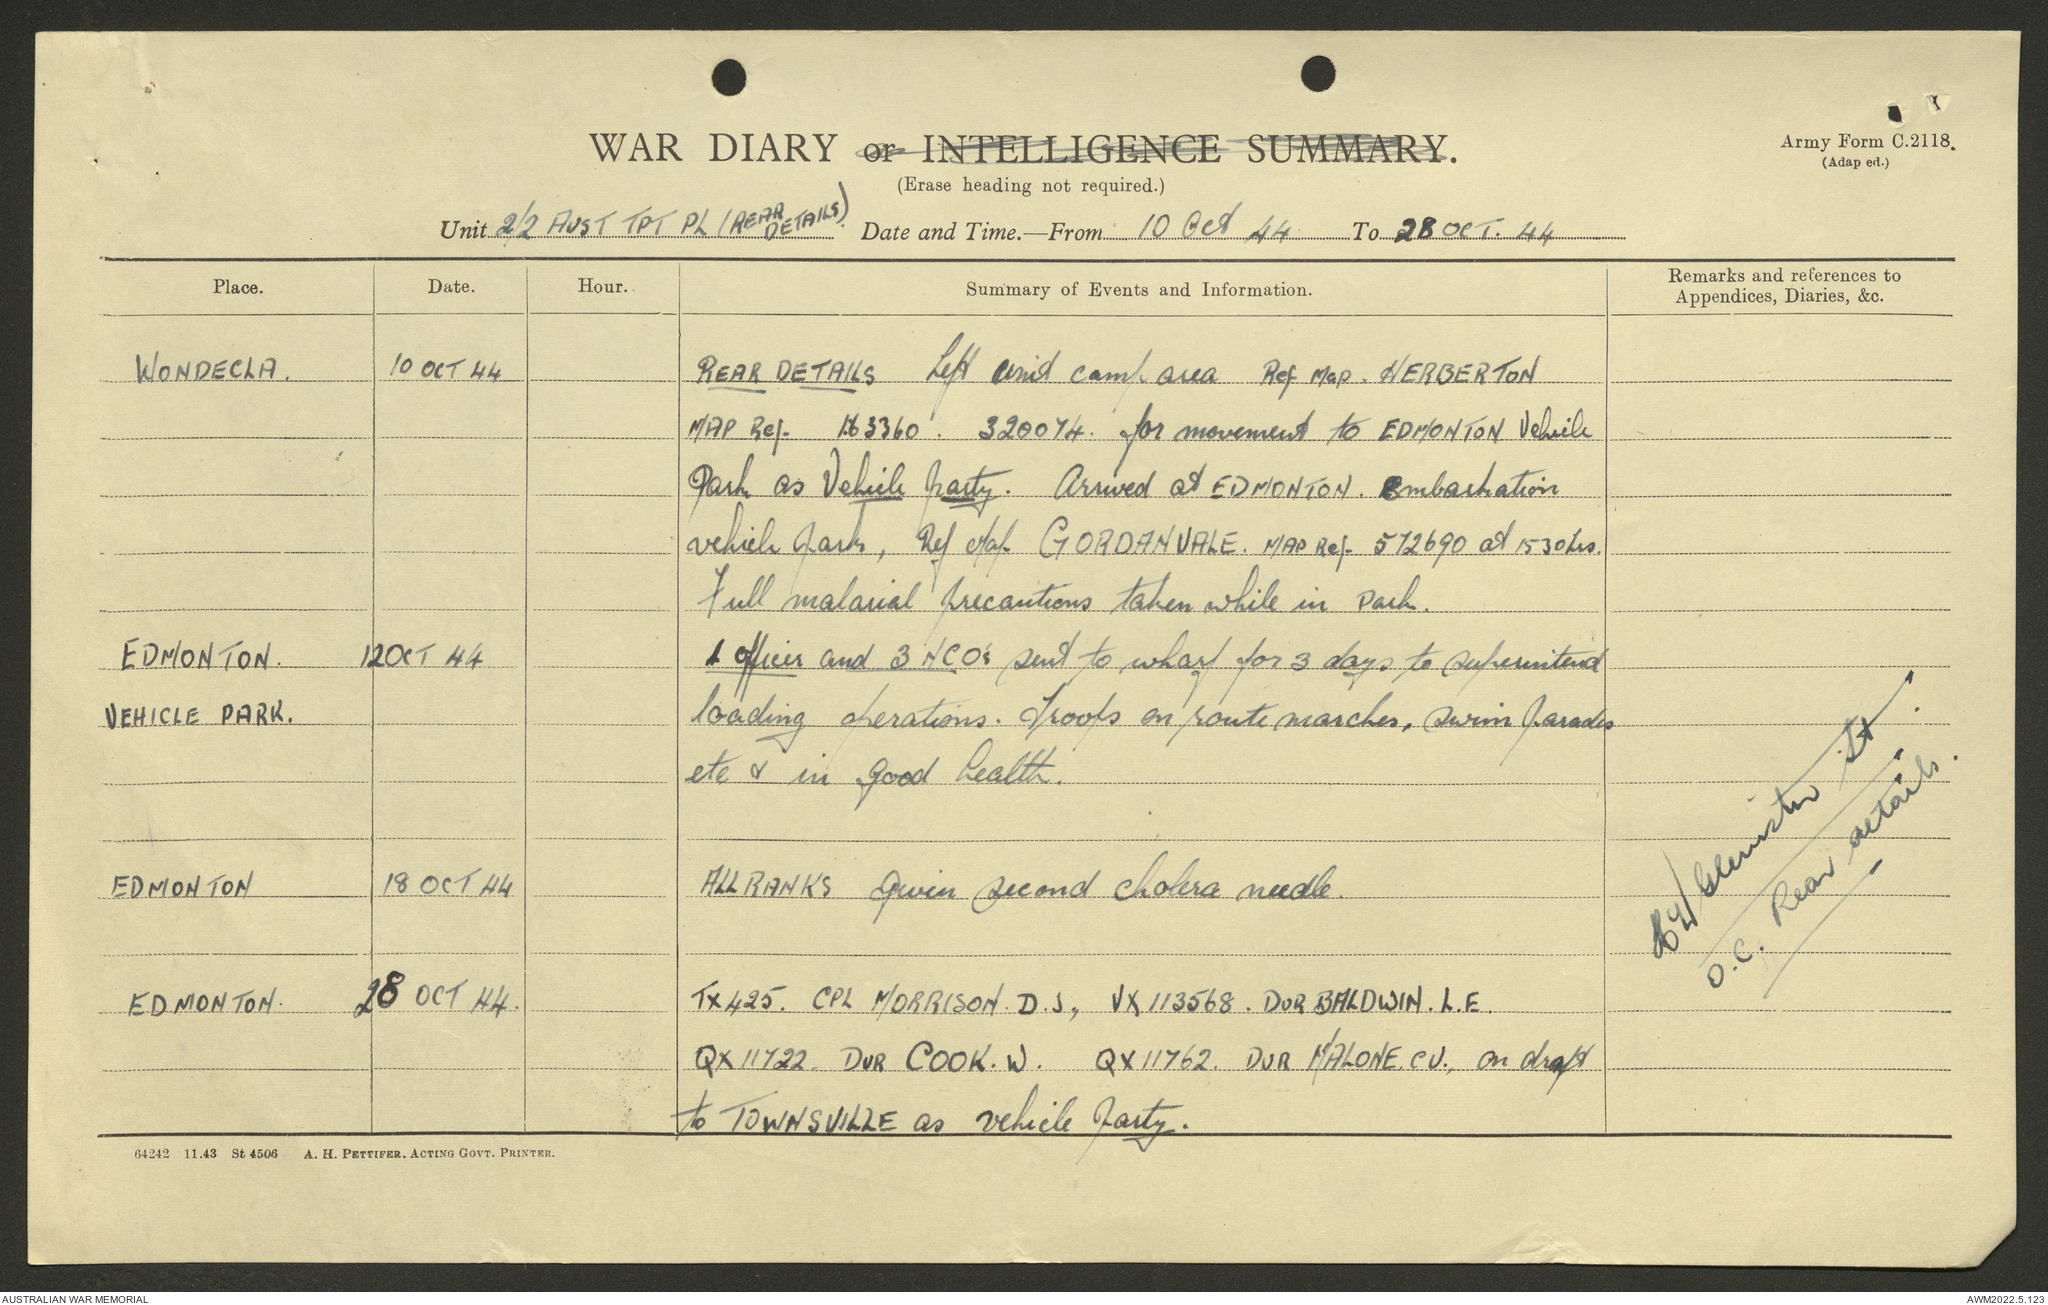 WAR DIARY or INTELLIGENCE SUMMARY.
Army Form C.2118.
(Adap ed.)
(Erase heading not required.)
Unit 2/2 AUST TPT PL (REAR DETAILS) Date and Time.—From 10 Oct 44 To 28 OCT. 44
Place. Date. Hour. Summary of Events and Information. Remarks and references to Appendices, Diaries, &c.
WONDECLA. 10 OCT 44 REAR DETAILS Left unit camp area Ref Map. HERBERTON
MAP Ref. 163360. 320074. for movement to EDMONTON Vehicle
Park as Vehicle party. Arrived at EDMONTON. Embarkation
vehicle park, Ref Map GORDANVALE. MAP Ref. 572690 at 1530hrs.
Full malarial precautions taken while in Park.
EDMONTON. 12 OCT 44 1 officer and 3 NCO's sent to wharf for 3 days to superintend
VEHICLE PARK. loading operations. Troops on route marches, swim parades
etc & in good health.
EDMONTON 18 OCT 44 ALL RANKS given second cholera needle.
EDMONTON. 28 OCT 44. TX425. CPL MORRISON. D.J., VX113568. DVR BALDWIN. L.E.
QX11722. DVR COOK. W. QX11762. DVR MALONE. C.V., on draft
to TOWNSVILLE as vehicle party.
Lt
O.C. Rear details.
64242 11.43 St 4506 A. H. PETTIFER. ACTING GOVT. PRINTER.
AUSTRALIAN WAR MEMORIAL
AWM2022.5.123